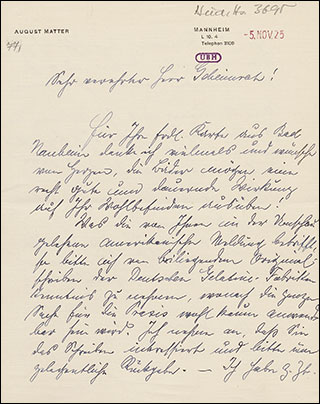 Heid. Hs 3695
AUGUST MATTER
MANNHEIM
L 10. 4
Telephon 3108
-5. NOV. 25
UBH
Sehr verehrter Herr Geheimrat!
Für Ihre frdl. Karte aus Bad
Nauheim danke ich vielmals und wünsche
von Herzen, die Bäder mögen eine
recht gute und dauernde Wirkung
auf Ihr Wohlbefinden ausüben!
Was die von Ihnen in der Umschau
gelesene amerikanische Meldung betrifft,
so bitte ich von beiliegendem Original
schreiben der Deutschen Gelatine-Fabriken
Kenntnis zu nehmen, wonach die ganze
Sache für die Praxis wohl kaum anwend
bar sein wird. Ich nehme an, daß Sie
das Schreiben interessiert und bitte um
gelegentliche Rückgabe. — Ich habe z. Zt.